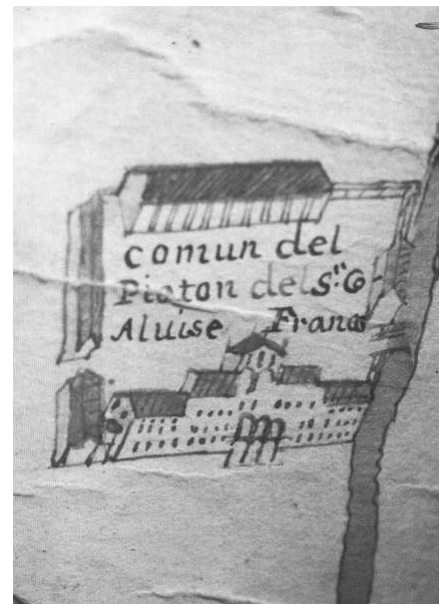 comun del
Pioton del S.r G
Aluise Franco